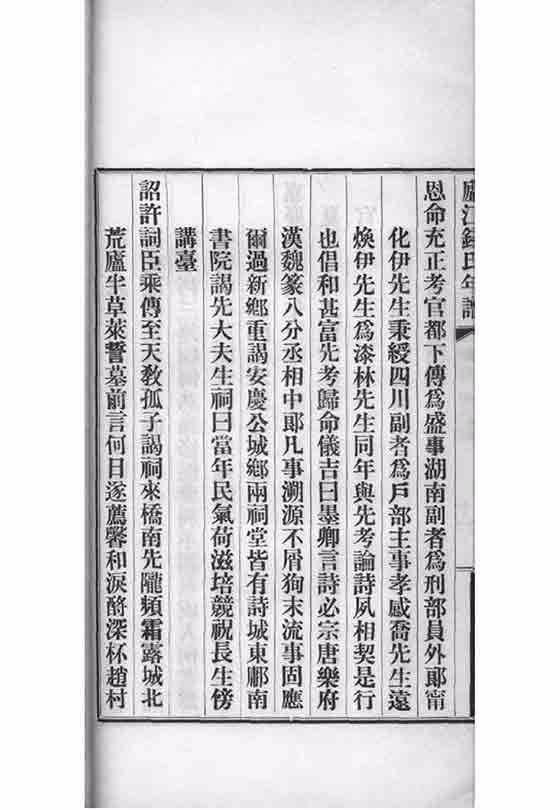 廬江錢氏年譜
恩命充正考官都下傳爲盛事湖南副者爲刑部員外郎甯
化伊先生秉綬四川副者爲戶部主事孝感喬先生遠
煥伊先生爲漆林先生同年與先考論詩夙相契是行
也倡和甚富先考歸命儀吉曰墨卿言詩必宗唐樂府
漢魏篆八分丞相中郎凡事溯源不屑狥末流事固應
爾過新鄉重謁安慶公城鄉兩祠堂皆有詩城東鄘南
書院謁先大夫生祠曰當年民氣荷滋培競祝長生傍
講臺
詔許詞臣乘傳至天教孤子謁祠來橋南先隴頻霜露城北
荒廬半草萊誓墓前言何日遂薦馨和淚酹深杯趙村